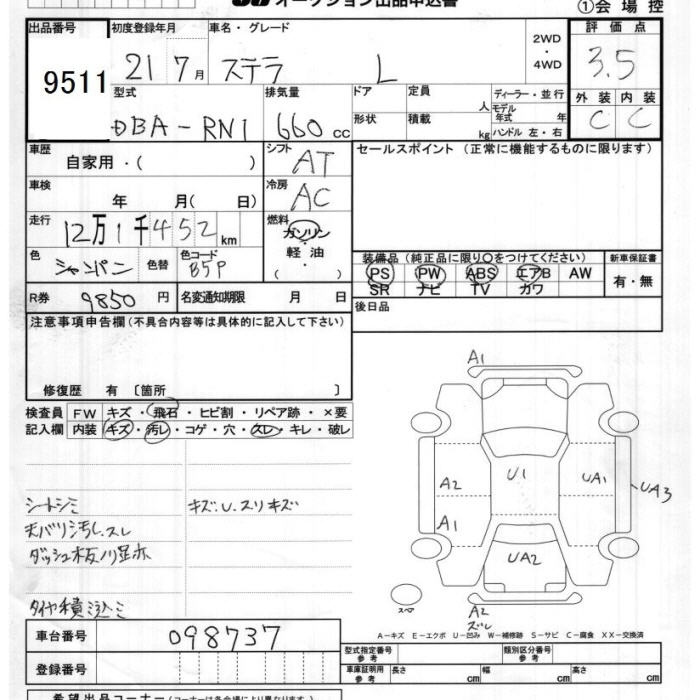 オークション出品申込書
①会場控
出品番号
9511
初度登録年月
21 7月
車名・グレード
ステラ L
2WD
・
4WD
評価点
3.5
型式
DBA-RN1
排気量
660 cc
ドア
定員
人
ディーラー・並行
モデル年式
年
形状
積載
kg
ハンドル 左・右
外装 内装
C C
車歴
自家用・( )
シフト
AT
セールスポイント (正常に機能するものに限ります)
車検
年 月( 日)
冷房
AC
走行
12万1千452km
燃料
ガソリン
・
軽油
( )
色
シャンパン
色替
色コード
B5P
装備品(純正品に限り〇をつけてください)
PS PW ABS エアB AW
SR ナビ TV カワ
新車保証書
有・無
R券
9850 円
名変通知期限 月 日
後日品
注意事項申告欄(不具合内容等は具体的に記入して下さい)
修復歴 有〔箇所 〕
検査員
記入欄
FW キズ・飛石・ヒビ割・リペア跡・×要
内装 キズ・汚レ・コゲ・穴・スレ・キレ・破レ
シートシミ
キズ.U.スリキズ
天バリ汚レ.スレ
タイヤ積込ミ
A1
A2
A1
U1
UA1
UA3
UA2
スペア
A2
ズレ
A-キズ E-エクボ U-凹み W-補修跡 S-サビ C-腐食 XX-交換済
車台番号
098737
登録番号
型式指定番号
参考
類別区分番号
参考
車庫証明用
参考
長さ cm
幅 cm
高さ cm
希望出品コーナー(コーナーは各会場により異なります)